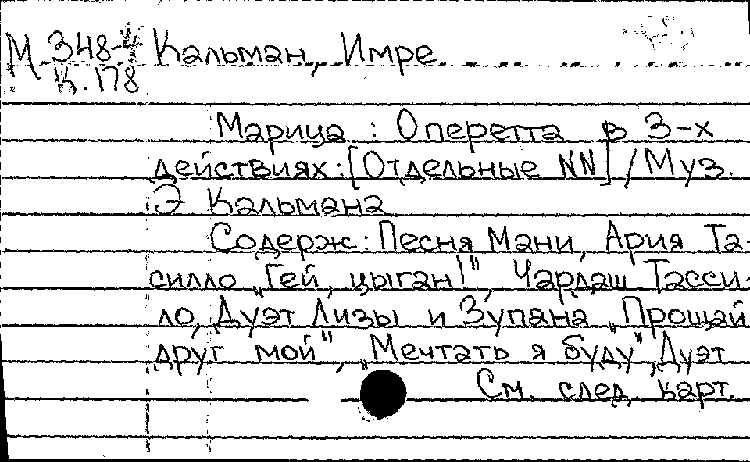 М 348-4 Кальман, Имре
К. 178
Марица : Оперетта в 3-х
действиях:[Отдельные NN] /Муз.
Э Кальмана
Содерж: Песня Мани, Ария Та-
силло „Гей, цыган!", Чардаш Тасси-
ло, Дуэт Лизы и Зупана „Прощай
друг мой", „Мечтать я буду", Дуэт
См. след. карт.